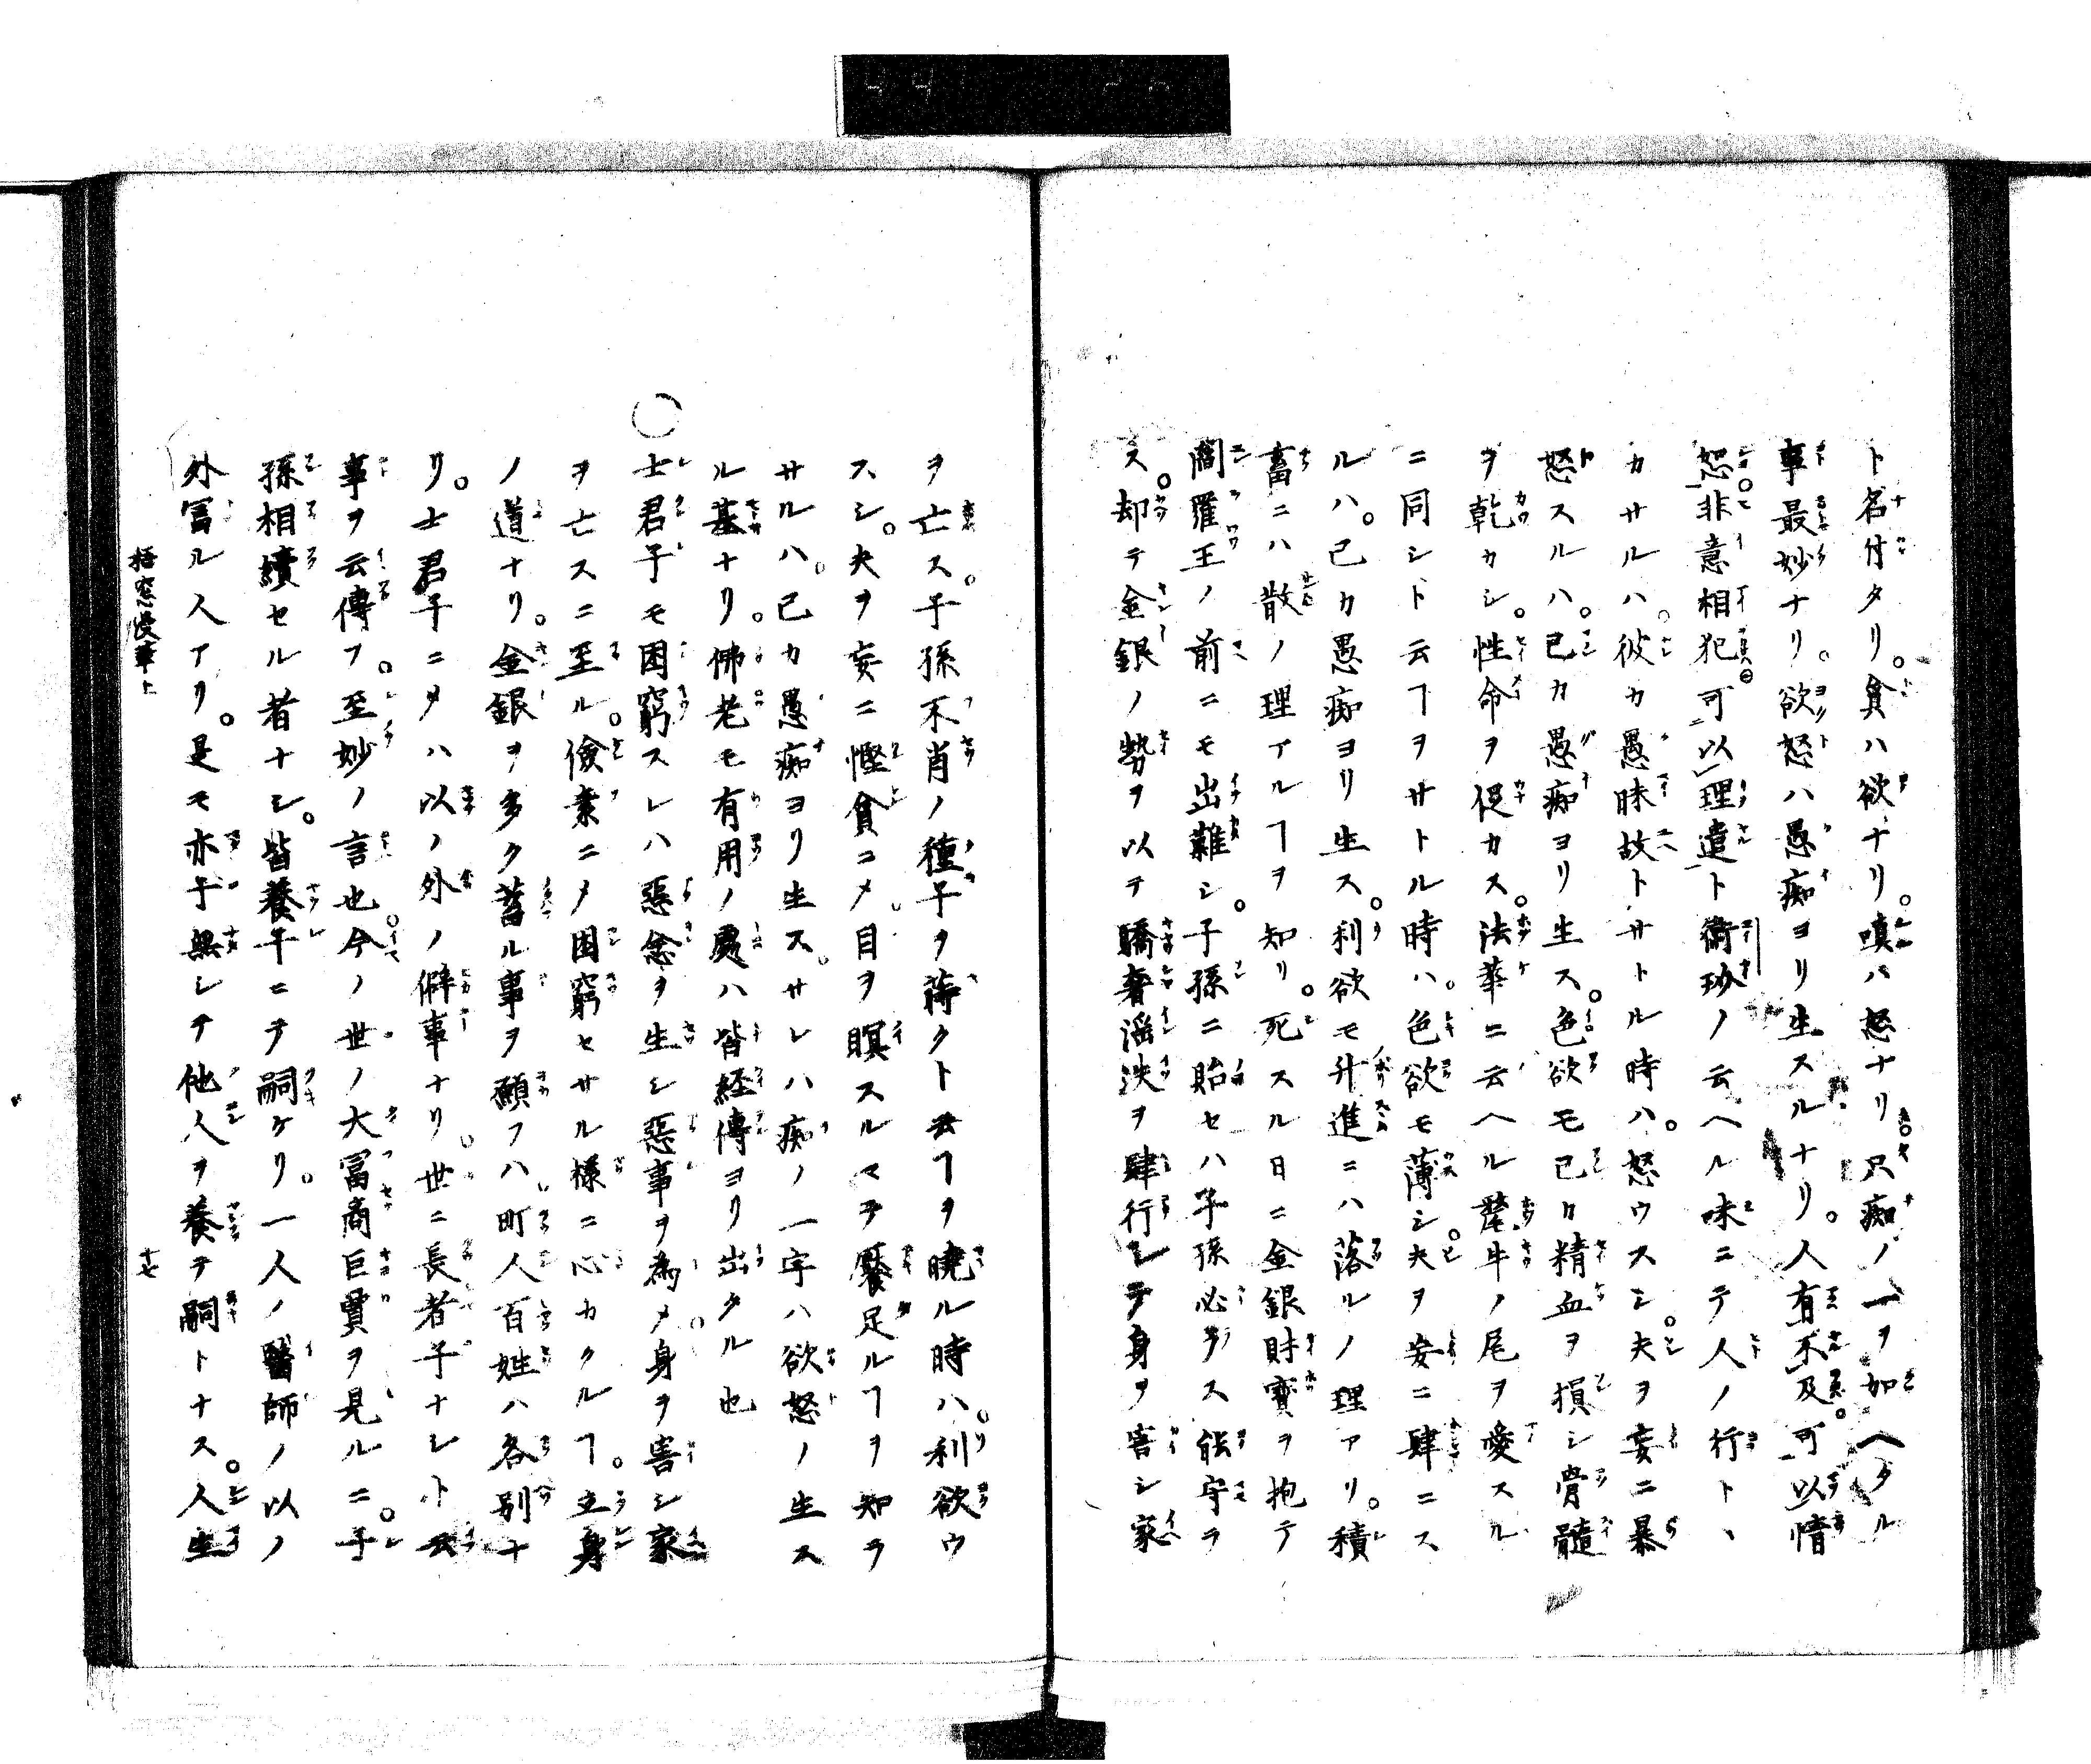 ト名付タリ。貪ハ欲ナリ。嗔ハ怒ナリ。只痴ノ一ヲ加ヘタル
事最妙ナリ。欲怒ハ愚痴ヨリ生スルナリ。人有不及。可以情
恕。非意相犯可以理遣ト衞玠ノ云ヘル味ニテ人ノ行トヽ
カサルハ。彼カ愚昧故トサトル時ハ。怒ウスシ。夫ヲ妄ニ暴
怒スルハ。己カ愚痴ヨリ生ス。色欲モ己カ精血ヲ損シ骨髓
ヲ乾カシ。性命ヲ促カス。法華ニ云ヘル犛牛ノ尾ヲ愛スル
ニ同シト云ヿヲサトル時ハ。色欲モ薄シ。夫ヲ妄ニ肆ニス
ルハ。己カ愚痴ヨリ生ス。利欲モ升進ニハ落ルノ理アリ。積
畜ニハ散ノ理アルヿヲ知リ。死スル日ニ金銀財寳ヲ抱テ
閻羅王ノ前ニモ出難シ。子孫ニ貽セハ子孫必ラス能守ラ
ス。却テ金銀ノ勢ヲ以テ驕奢滛泆ヲ肆行シテ身ヲ害シ家
ヲ亡ス。子孫不肖ノ種子ヲ蒔クト云ヿヲ曉ル時ハ。利欲ウ
スシ。夫ヲ妄ニ慳貪ニメ。目ヲ瞑スルマテ饜足ルヿヲ知ラ
サルハ。己カ愚痴ヨリ生ス。サレハ痴ノ一字ハ欲怒ノ生ス
ル基ナリ。佛老モ有用ノ處ハ皆経傳ヨリ出タル也
○士君子モ困窮スレハ惡念ヲ生シ惡事ヲ為メ。身ヲ害シ家
ヲ亡スニ至ル。儉素ニメ困窮セサル様ニ心カクルヿ。立身
ノ道ナリ。金銀ヲ多ク蓄ル事ヲ願フハ。町人百姓ハ各別ナ
リ。士君子ニメハ以ノ外ノ僻事ナリ。世ニ長者子ナシト云
事ヲ云傳フ。至妙ノ言也。今ノ世ノ大冨商巨賈ヲ見ルニ。子
孫相續セル者ナシ。皆養子ニテ嗣ケリ。一人ノ醫師ノ以ノ
外冨ル人アリ。是モ亦子無シテ他人ヲ養テ嗣トナス。人生
梧窓漫筆上
十七